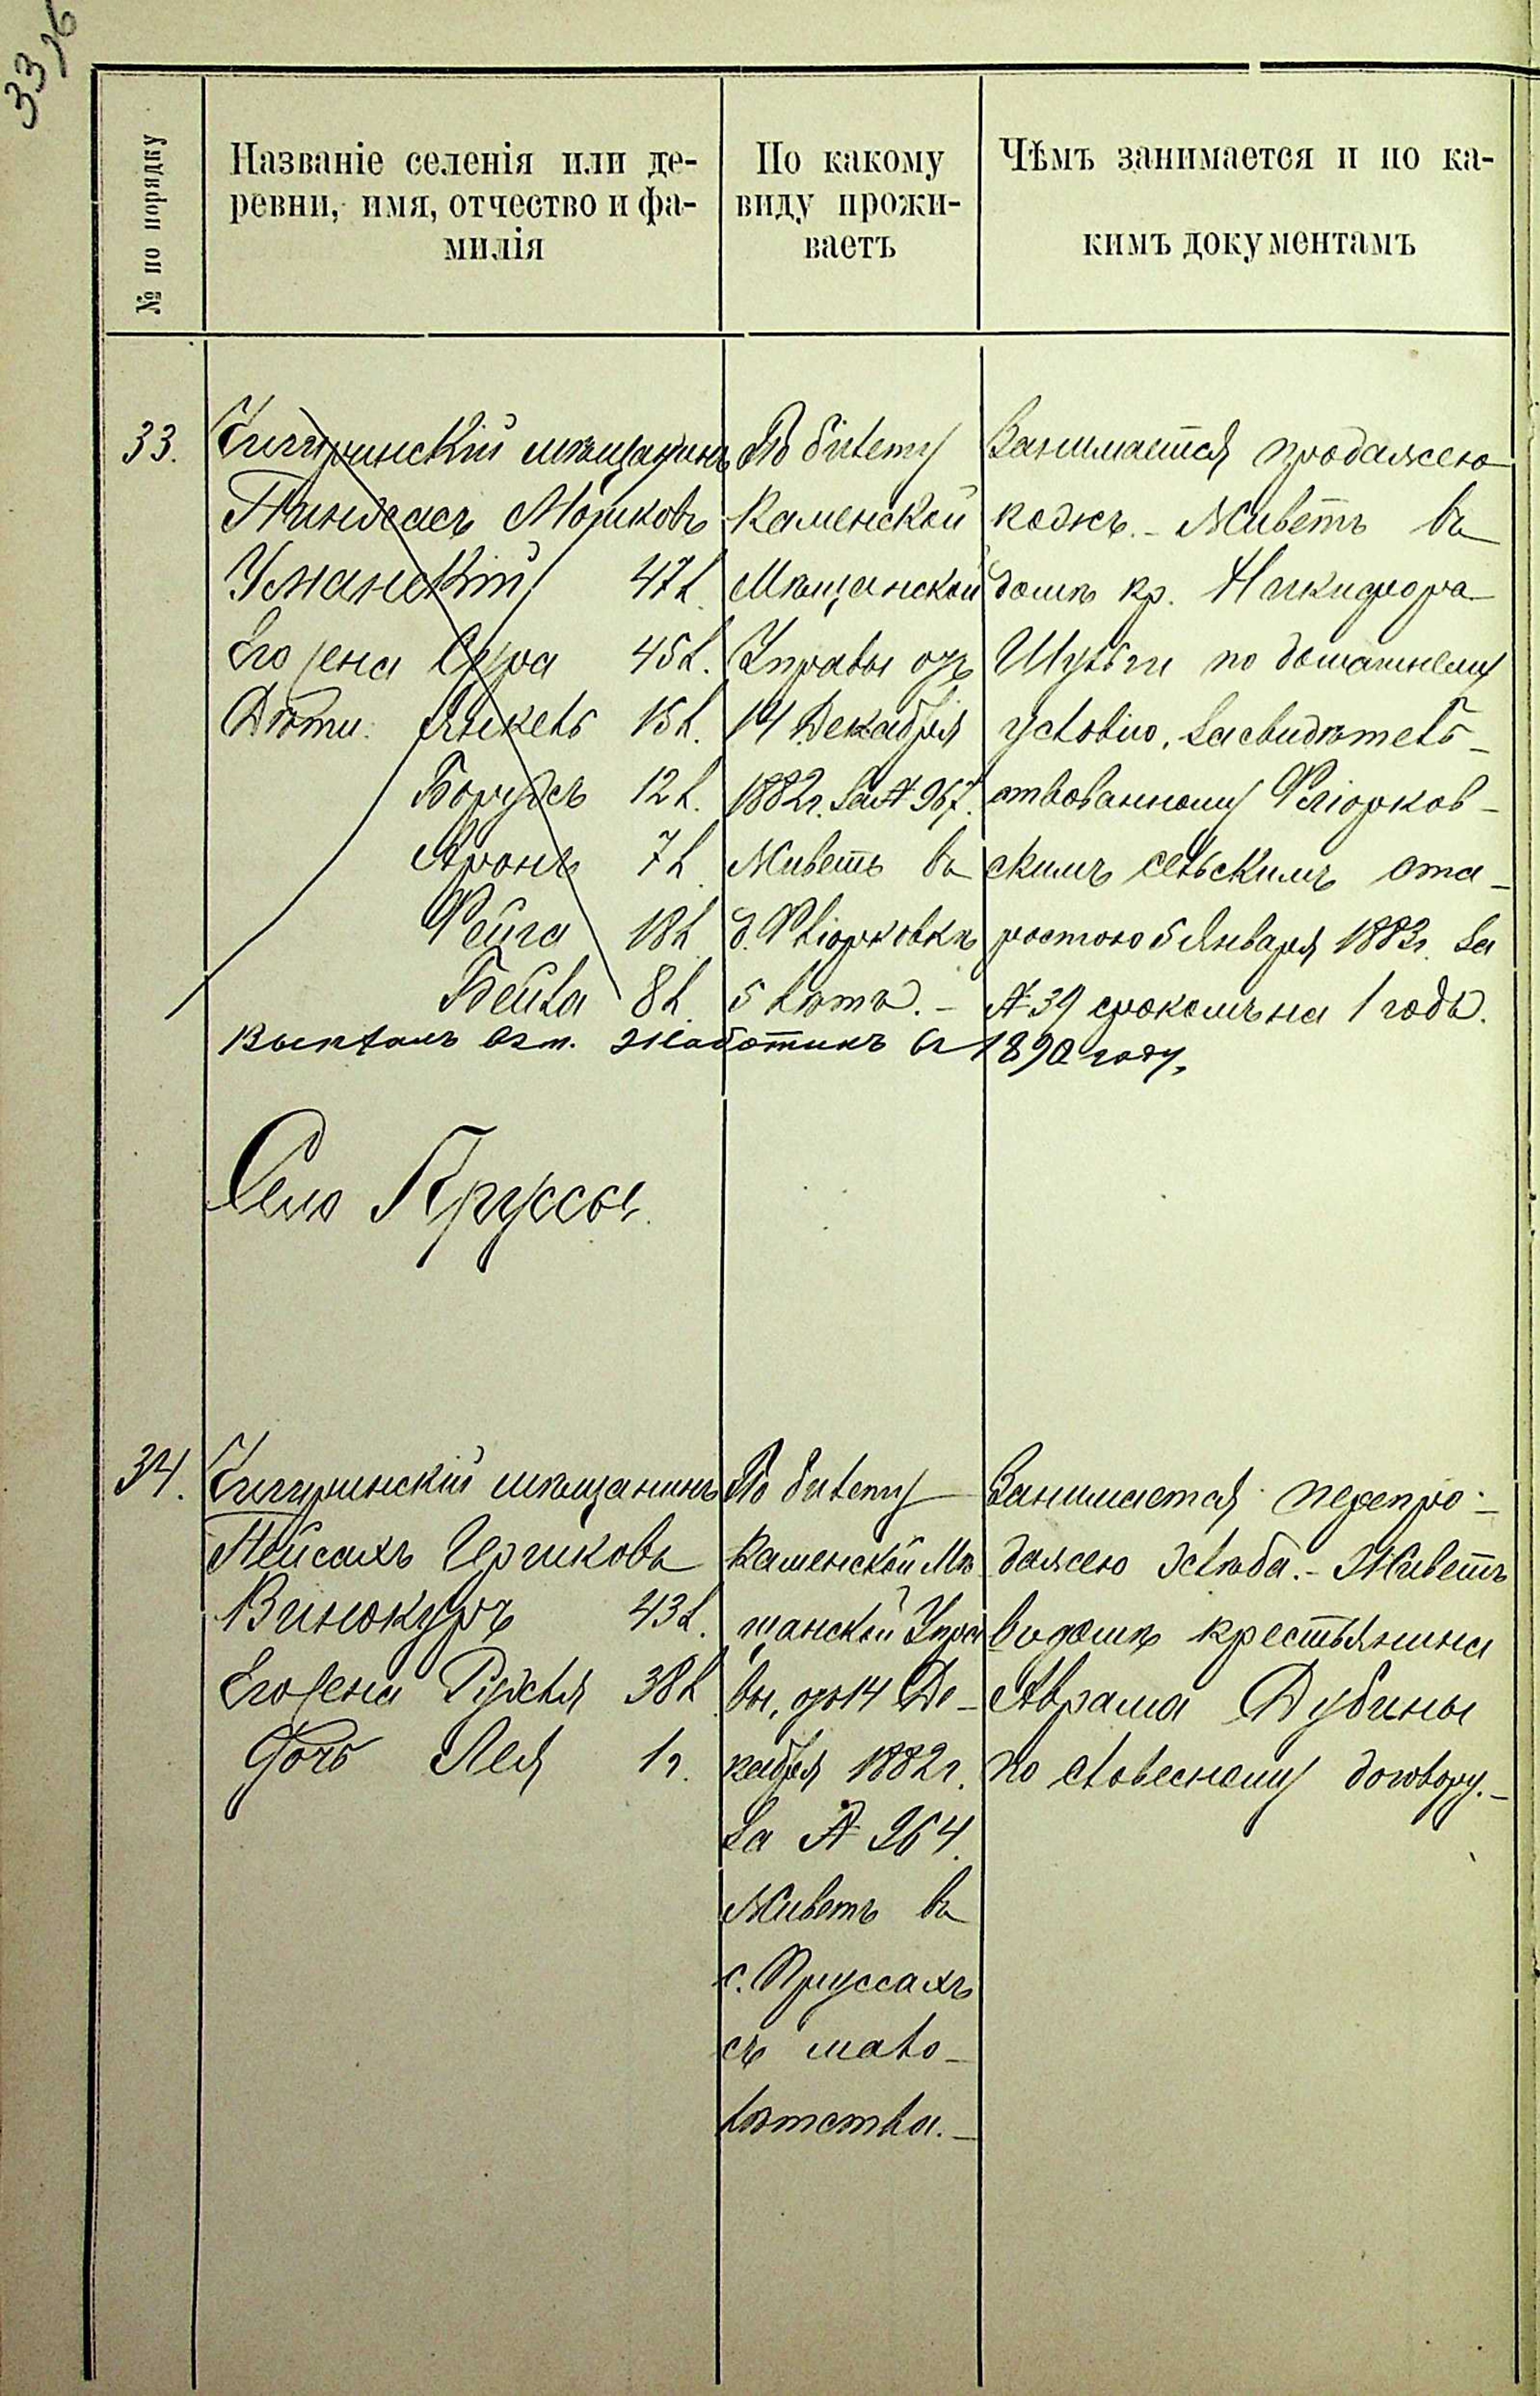 33 16
№ по порядку
Названіе селенія или де-
ревни, имя, отчество и фа-
милія
По какому
виду прожи-
ваетъ
Чѣмъ занимается и по ка-
кимъ документамъ
33.
Чигиринскій мѣщанинъ
Пинхасъ Мошковъ
Уманскій 47 л.
Его жена Сура 45 л.
Дѣти: Янкель 15 л.
Борухъ 12 л.
Аронъ 7 л.
Фейга 18 л.
Бейла 8 л.
По билету
Каменской
Мѣщанской
Управы отъ
14 Декабря
1882 г. за № 967.
Живетъ въ
д. Флiорковкѣ
5 лѣтъ. -
Занимается продажею
кожъ. - Живетъ въ
домѣ кр. Никифора
Шульги по домашнему
условію, засвидѣтель-
ствованному Флiорков-
скимъ сельскимъ ста-
ростою 5 Января 1883 г. за
№ 39 срокомъ на 1 годъ.
въ 1890 году,
Село Пруссы.
34.
Чигиринскій мѣщанинъ
Пейсахъ Гершковъ
Винокуръ 43 л.
Его жена Рухля 38 л.
Дочь Лея 1 г.
По билету
Каменской Мѣ
щанской Упра
вы, отъ 14 Де-
кабря 1882 г.
за № 964.
Живетъ въ
с. Пруссахъ
съ мало-
лѣтства. -
Занимается перепро-
дажею хлѣба. - Живетъ
въ домѣ крестьянина
Аврама Дубины
по словесному договору. -